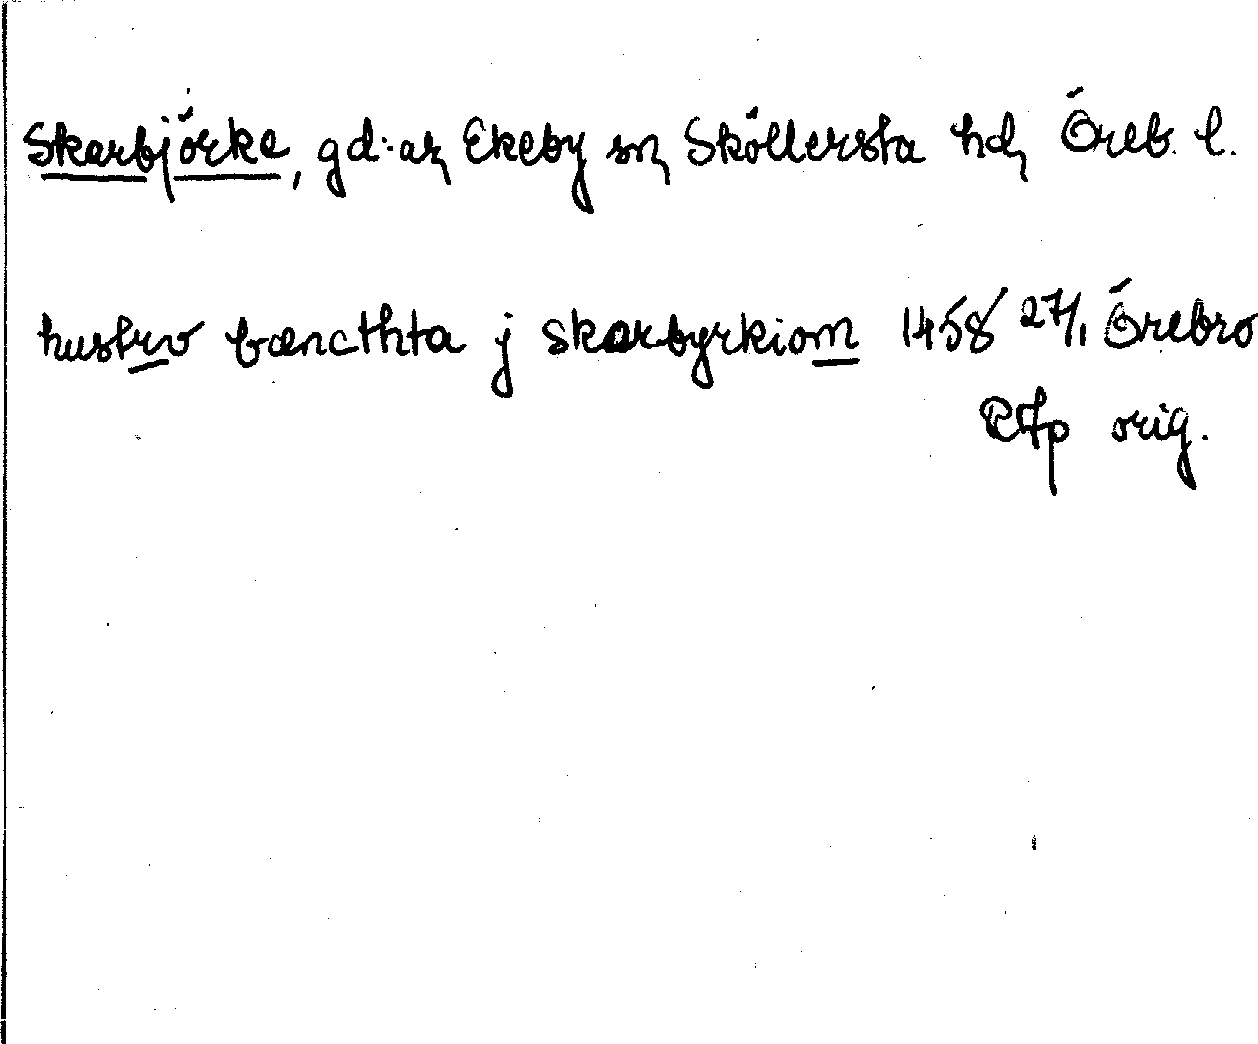 Skarbjörke, gd:ar, Ekeby sn, Sköllersta hd, Öreb. l.
hustrv bæncthta j skarbyrkiom 1458 27/1 Örebro
RAp orig.